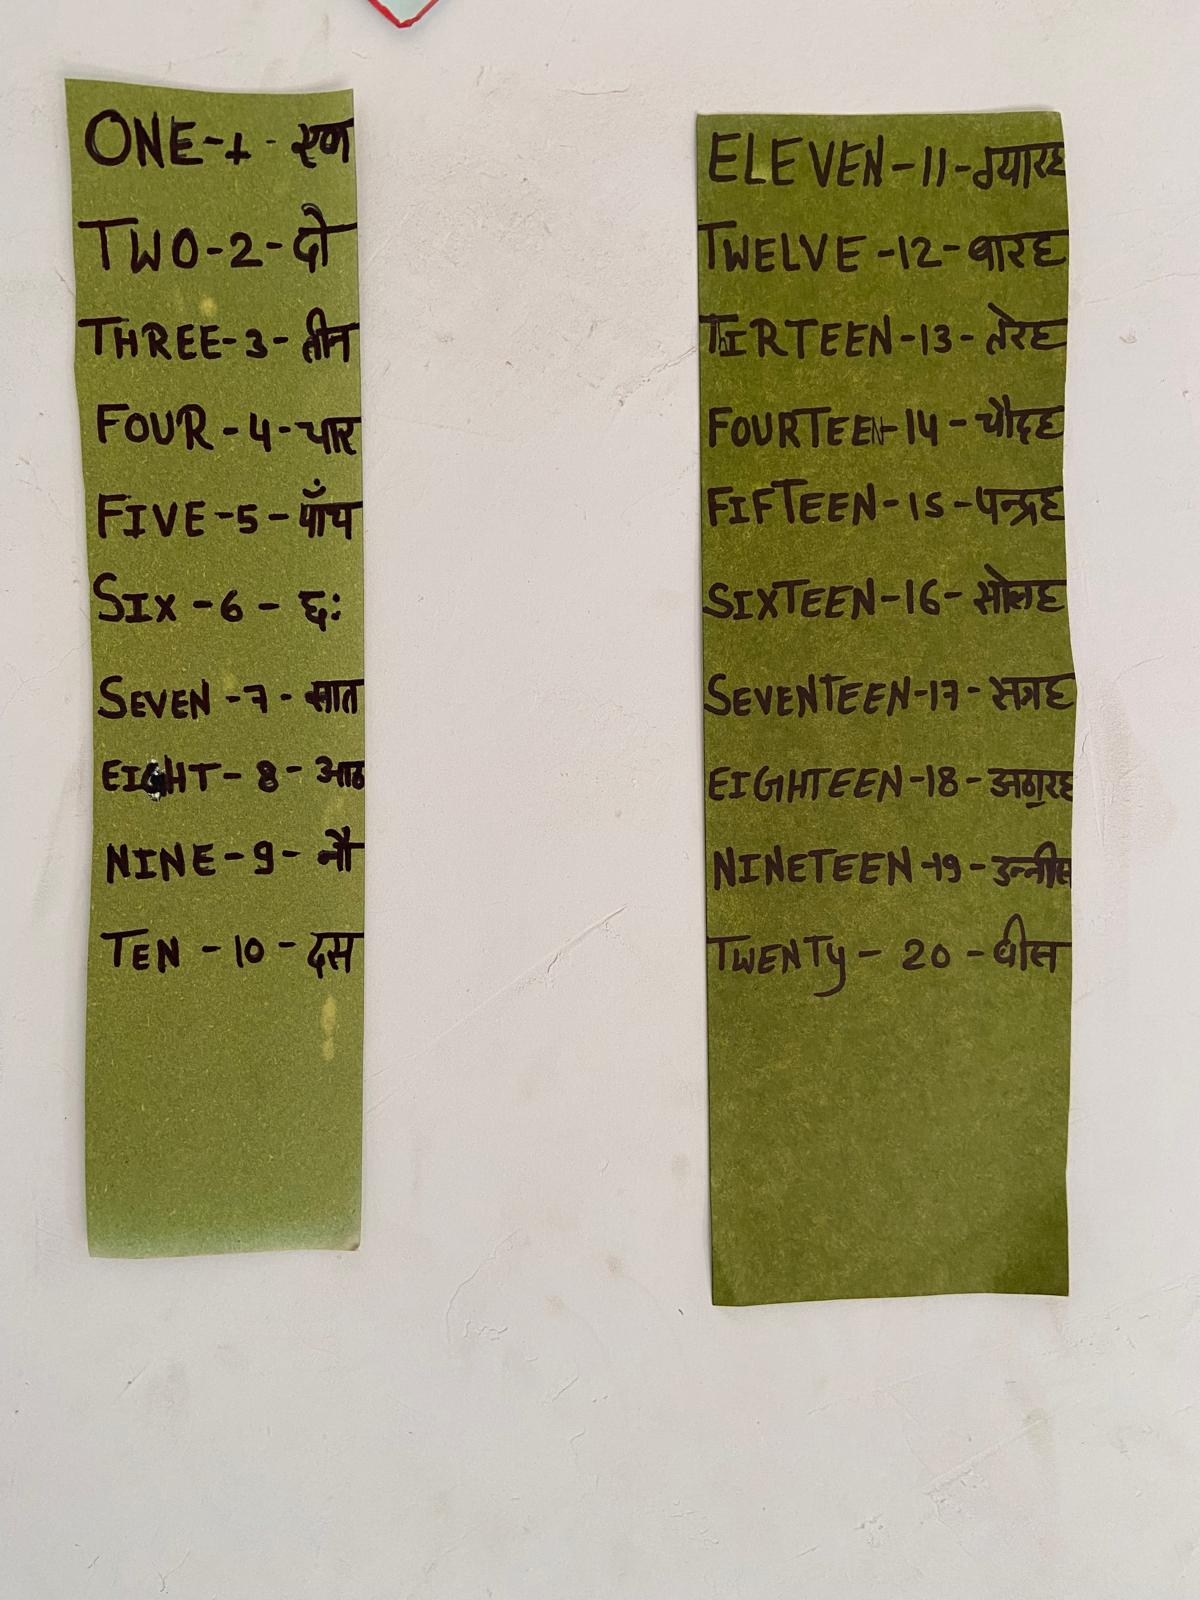 ONE-1- एक
TWO-2-दो
THREE-3-तीन
FOUR-4-चार
FIVE-5-पाँच
SIX-6-छः
SEVEN-7-सात
EIGHT-8-आठ
NINE-9-नौ
TEN-10-दस
ELEVEN-11-ग्यारह
TWELVE-12-बारह
THIRTEEN-13-तेरह
FOURTEEN-14-चौदह
FIFTEEN-15-पन्द्रह
SIXTEEN-16-सोलह
SEVENTEEN-17-सत्रह
EIGHTEEN-18-अठारह
NINETEEN-19-उन्नीस
TWENTY-20-बीस